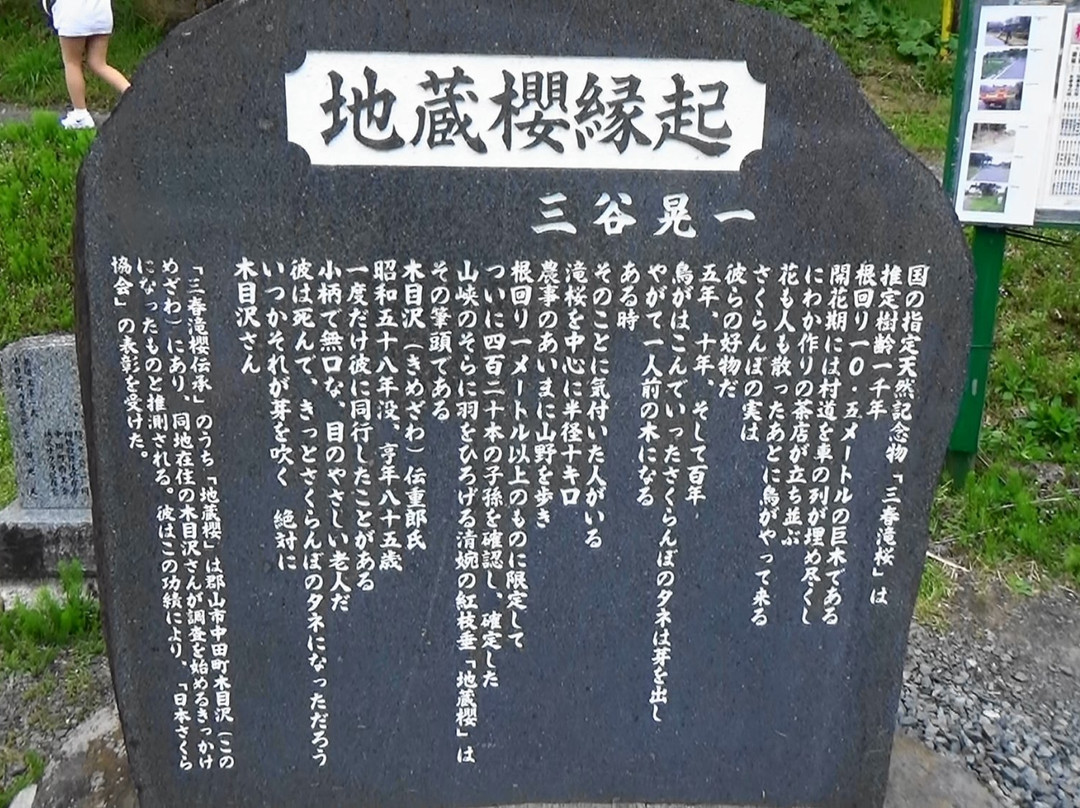 地蔵櫻縁起
三谷晃一
国の指定天然記念物「三春滝桜」は
推定樹齢一千年
根回り一〇・五メートルの巨木である
開花期には村道を車の列が埋め尽くし
にわか作りの茶店が立ち並ぶ
花も人も散ったあとに鳥がやって来る
さくらんぼの実は
彼らの好物だ
五年、十年、そして百年
鳥がはこんでいったさくらんぼのタネは芽を出し
やがて一人前の木になる
ある時
そのことに気付いた人がいる
滝桜を中心に半径十キロ
農事のあいまに山野を歩き
根回り一メートル以上のものに限定して
ついに四百二十本の子孫を確認し、確定した
山峡のそらに羽をひろげる清婉の紅枝垂「地蔵櫻」は
その筆頭である
木目沢（きめざわ）伝重郎氏
昭和五十八年没、享年八十五歳
一度だけ彼に同行したことがある
小柄で無口な、目のやさしい老人だ
彼は死んで、きっとさくらんぼのタネになっただろう
いつかそれが芽を吹く　絶対に
木目沢さん
「三春滝櫻伝承」のうち「地蔵櫻」は郡山市中田町木目沢（この
めざわ）にあり、同地在住の木目沢さんが調査を始めるきっかけ
になったものと推測される。彼はこの功績により、「日本さくら
協会」の表彰を受けた。